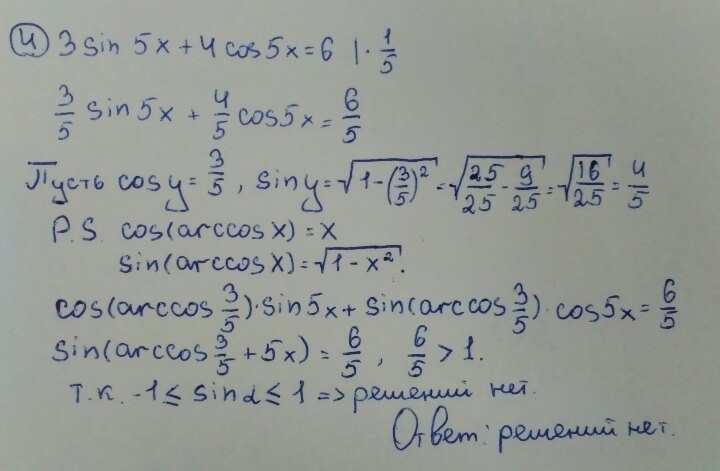 ④ 3 sin 5x + 4 cos 5x = 6 | · 1/5
3/5 sin 5x + 4/5 cos 5x = 6/5
Пусть cos y = 3/5, sin y = √(1 - (3/5)²) = √(25/25 - 9/25) = √(16/25) = 4/5
P.S. cos(arccos x) = x
sin(arccos x) = √(1 - x²).
cos(arccos 3/5) · sin 5x + sin(arccos 3/5) · cos 5x = 6/5
sin(arccos 3/5 + 5x) = 6/5, 6/5 > 1.
Т.к. -1 ≤ sin α ≤ 1 => решений нет.
Ответ: решений нет.